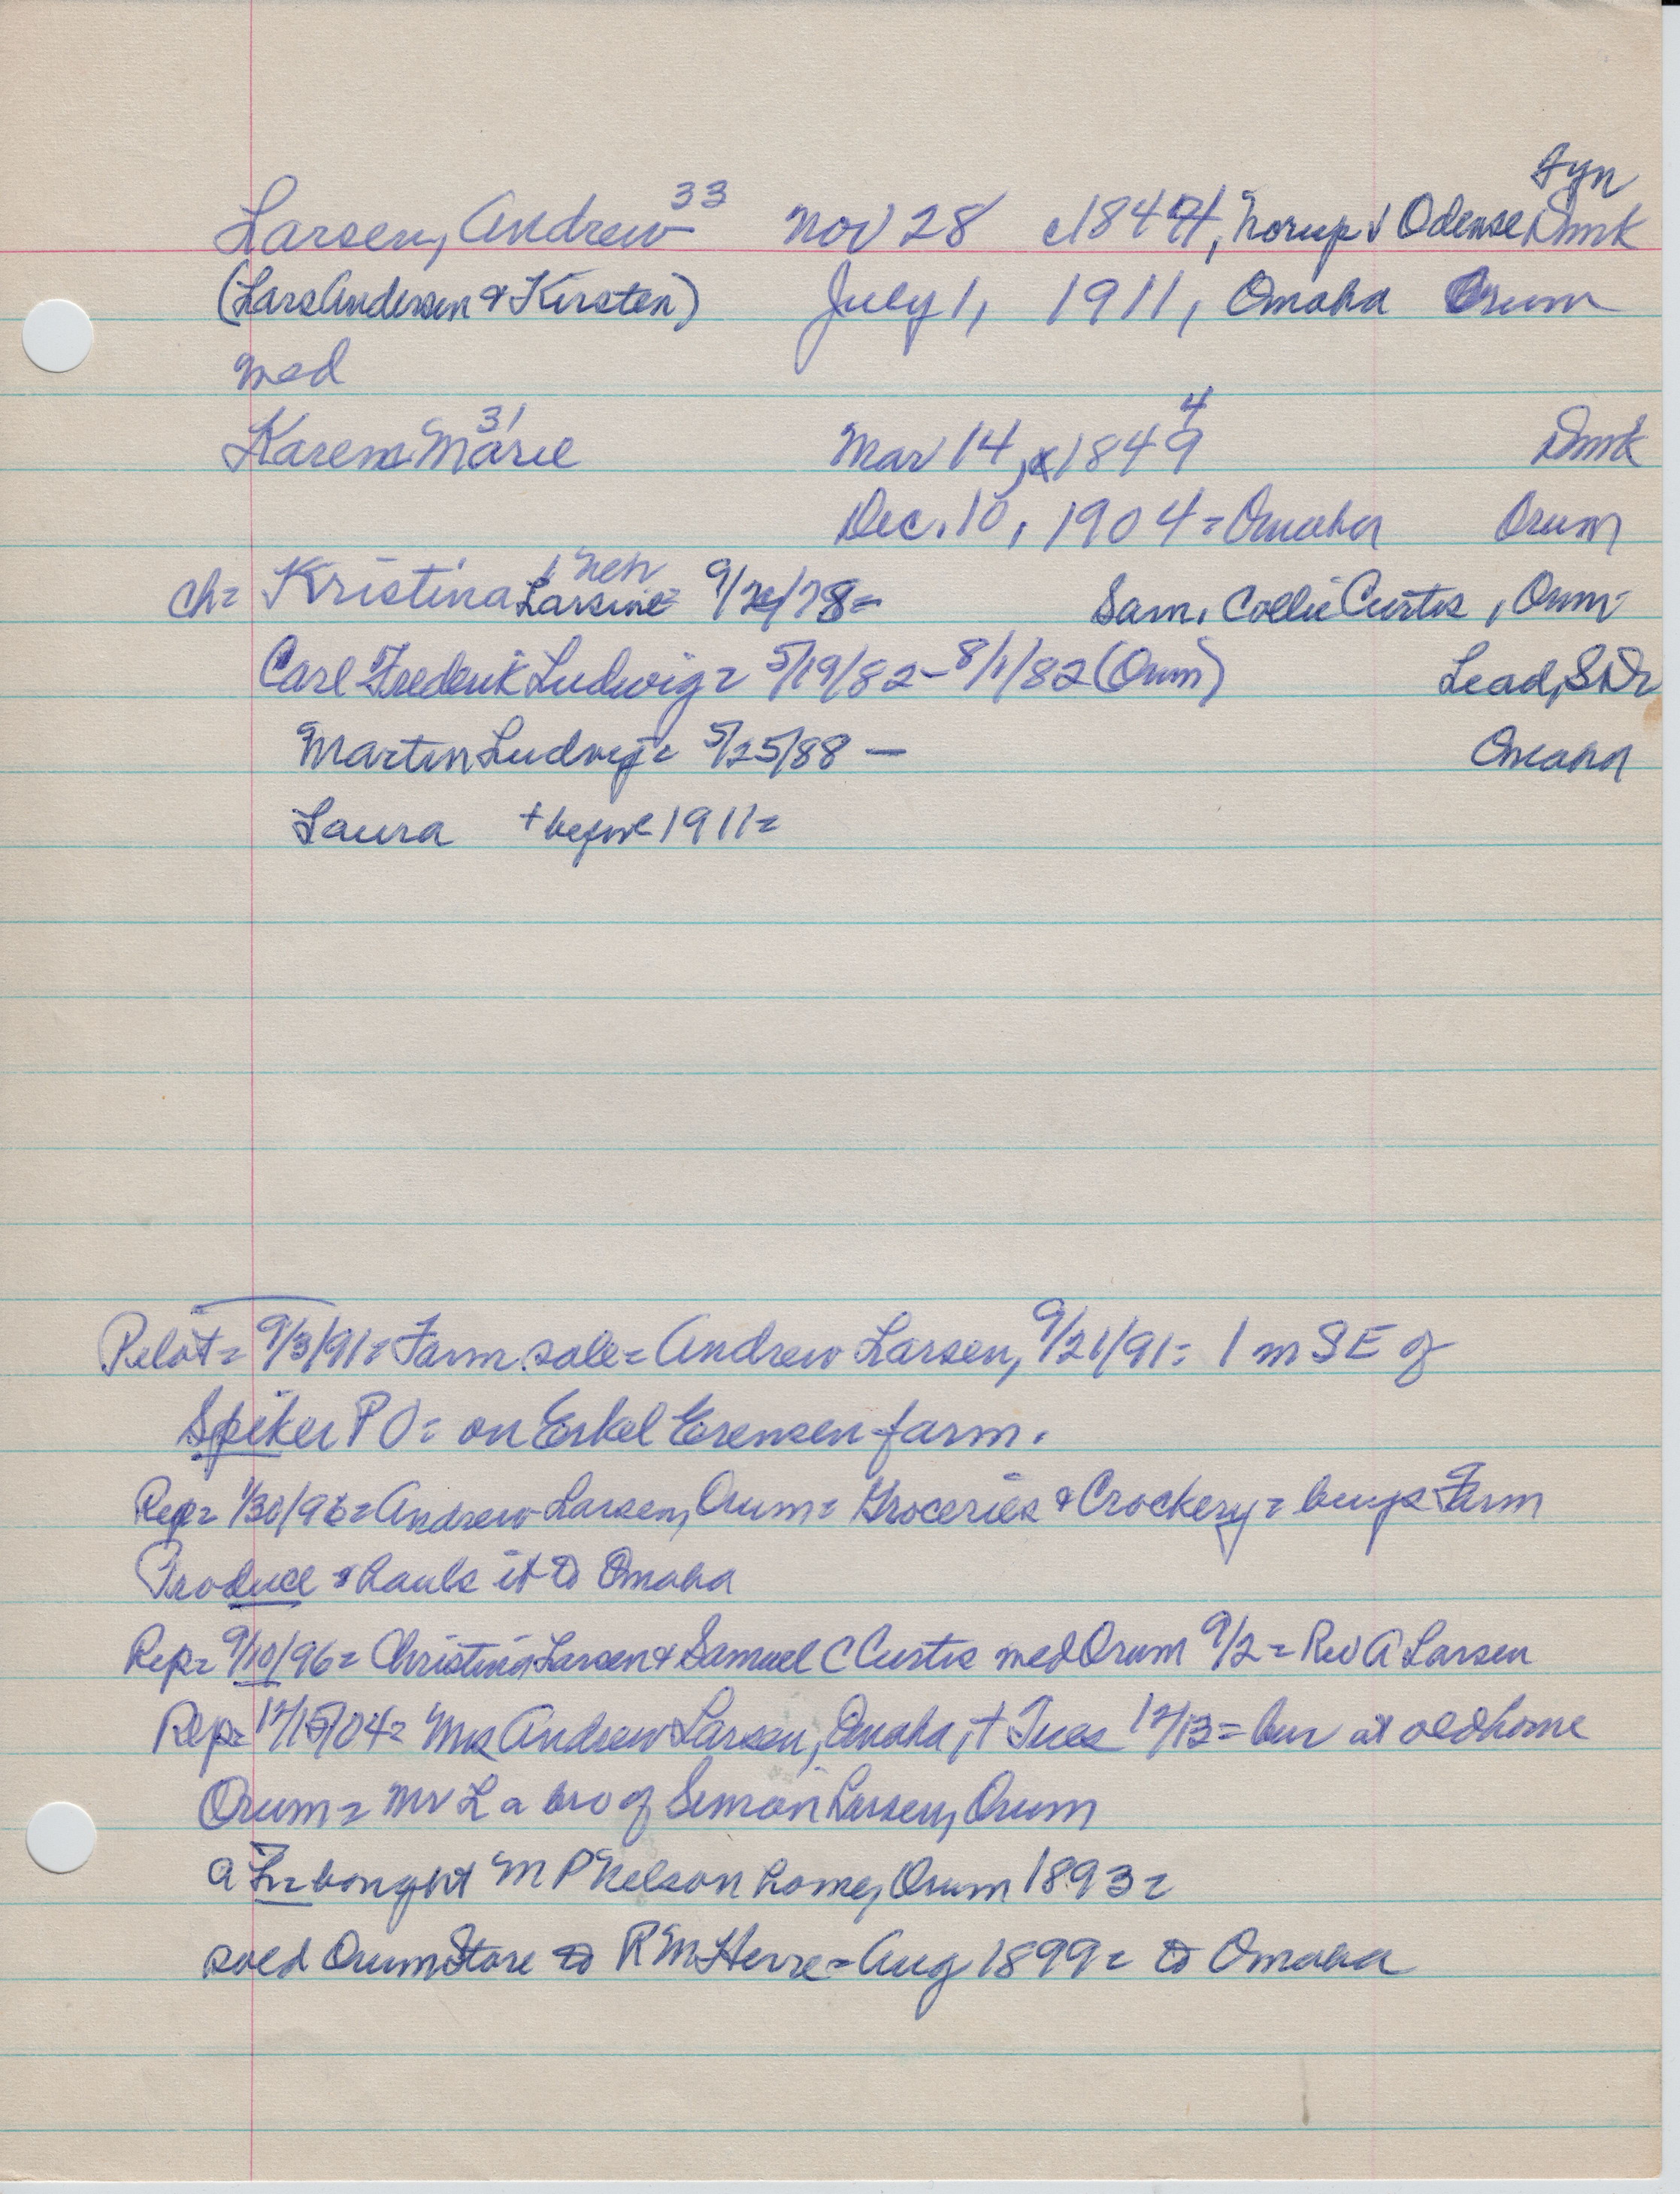 Fyn
Larsen, Andrew 33 Nov 28 c1847, Norup v Odense Dmk
(Lars Andersen & Kirsten) July 1, 1911, Omaha Orum
med
Karen Marie 31 Mar 14, 1849 4 Dmk
Dec. 10, 1904 = Omaha Orum
ch = Kristina Larsine Neb 9/24/78 = Sam. Collie Curtis, Orum
Carl Frederik Ludwig = 5/19/82 - 8/1/82 (Orum) Lead, SD
Martin Ludvig = 5/25/88 — Omaha
Laura + before 1911 =
Pilot = 9/3/91 = Farm sale = Andrew Larsen, 9/21/91 = 1 m SE of
Spiker PO = on Eskel Erensen farm.
Rep = 1/30/96 = Andrew Larsen, Orum = Groceries & Crockery = buys Farm
Produce & hauls it to Omaha
Rep = 9/10/96 = Christina Larsen & Samuel C Curtis med Orum 9/2 = Rev A Larsen
Rep = 12/15/04 = Mrs Andrew Larsen, Omaha, + Tues 12/13 = bur at old home
Orum = Mr L a bro of Simon Larsen, Orum
A L = bought M P Nelson home, Orum 1893 =
sold Orum Store to R M Herre = Aug 1899 = to Omaha